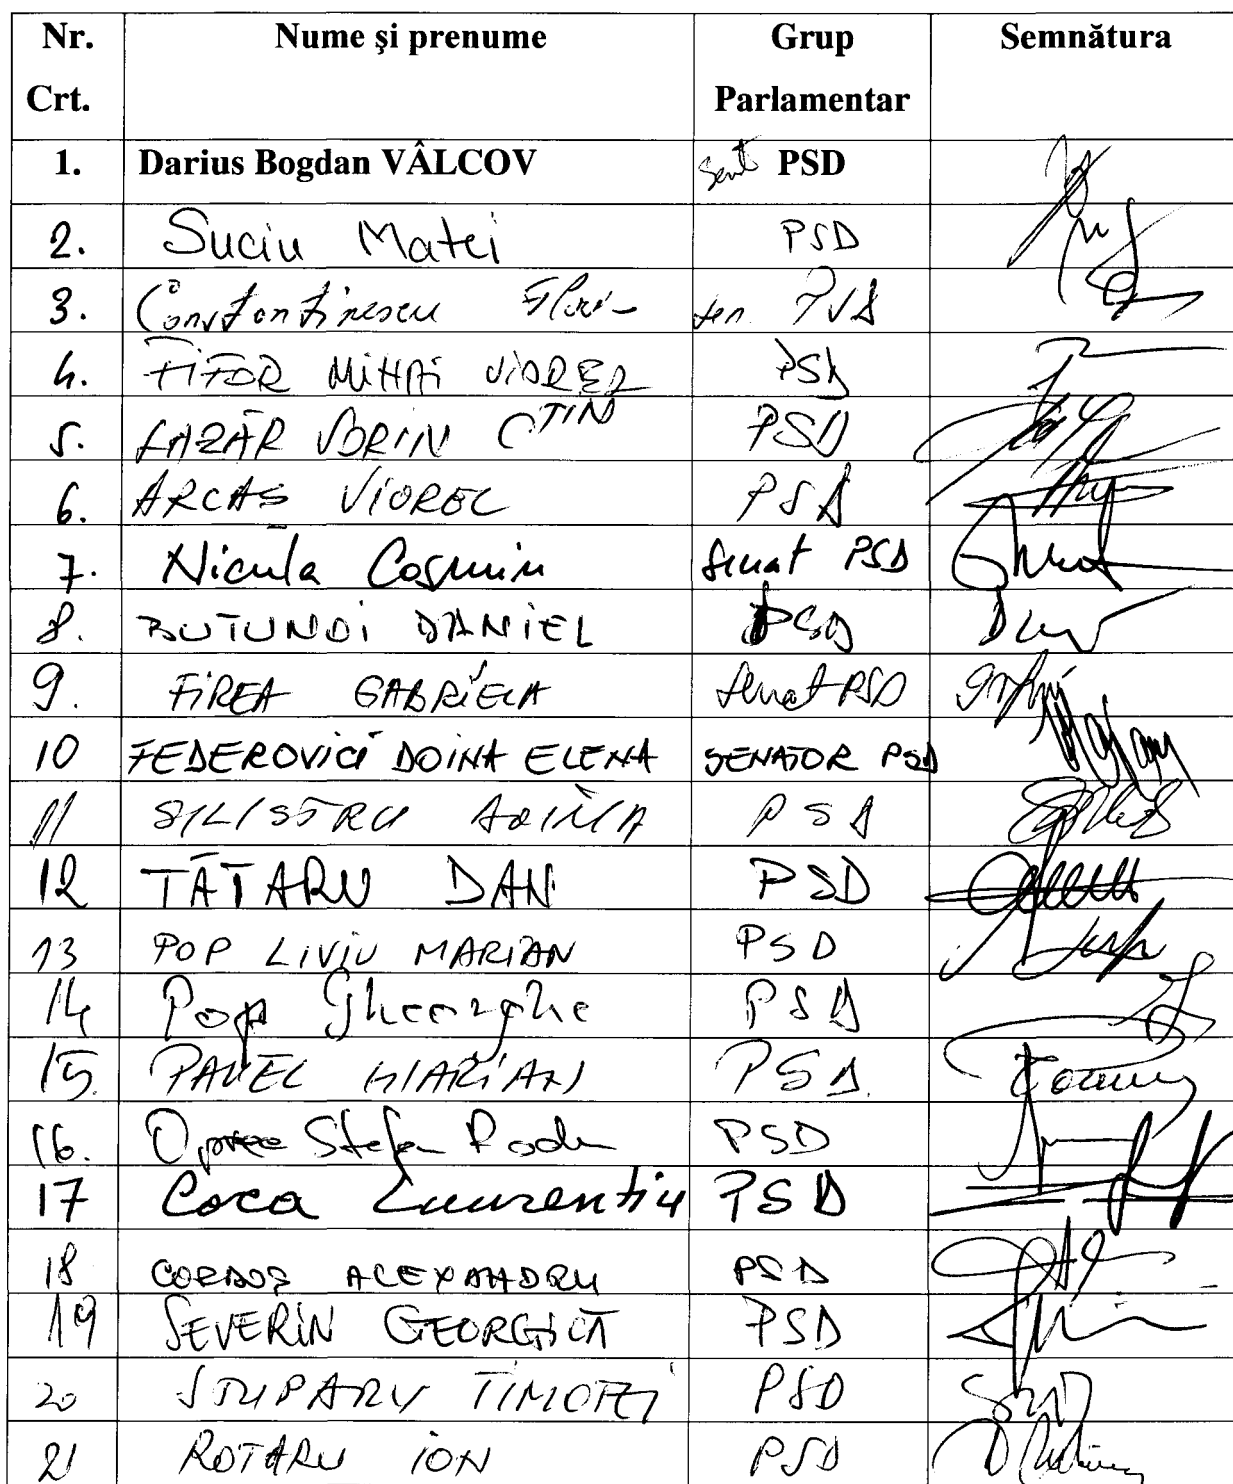 Nr. Nume şi prenume Grup Semnătura
Crt. Parlamentar
1. Darius Bogdan VÂLCOV PSD
2. Suciu Matei PSD
3. Constantinescu Flori- sen. PSD
4. FIFOR MIHAI VIOREL PSD
5. LAZĂR SORIN CTIN PSD
6. ARCAS VIOREL PSD
7. Nicula Cosmin Senat PSD
8. BUTUNOI DANIEL PSD
9. FIREA GABRIELA Senat PSD
10 FEDEROVICI DOINA ELENA SENATOR PSD
11 SILISTRU DOINA PSD
12 TĂTARU DAN PSD
13 POP LIVIU MARIAN PSD
14 Pop Gheorghe PSD
15. PAVEL MARIAN PSD.
16. Oprea Stefan Radu PSD
17 Coca Laurentiu PSD
18 CORDOȘ ALEXANDRU PSD
19 SEVERIN GEORGICĂ PSD
20 STUPARU TIMOTEI PSD
21 ROTARU ION PSD